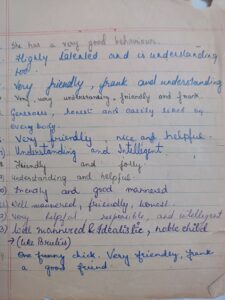 She has a very good behaviour.
Highly talented and is understanding
too.
Very friendly, frank and understanding
Very, very understanding, friendly and frank.
Generous, honest and easily liked by
every body.
Very friendly, nice and helpful.
Understanding and Intelligent
Friendly and
understanding and helpful.
10) Friendly and good mannered
11) Well mannered, friendly, honest.
12) Very helpful responsible, and intelligent
13) Well mannered & Idealistic, noble child
→ (like Brutus)
14 One funny chick. Very friendly, frank
& a good friend.